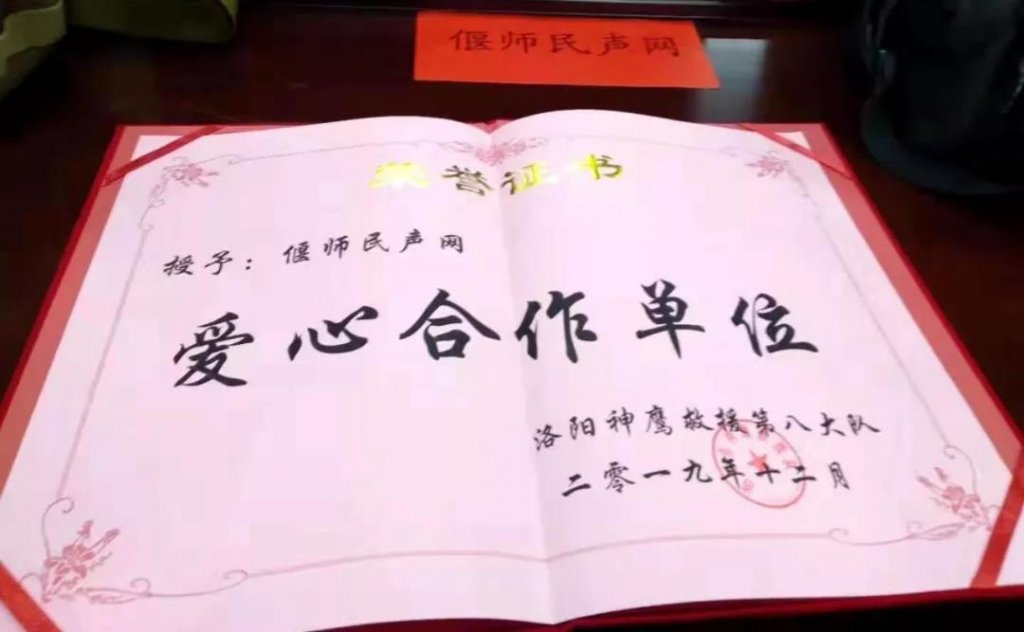 偃师民声网
荣誉证书
授予：偃师民声网
爱心合作单位
洛阳神鹰救援第八大队
二零一九年十二月